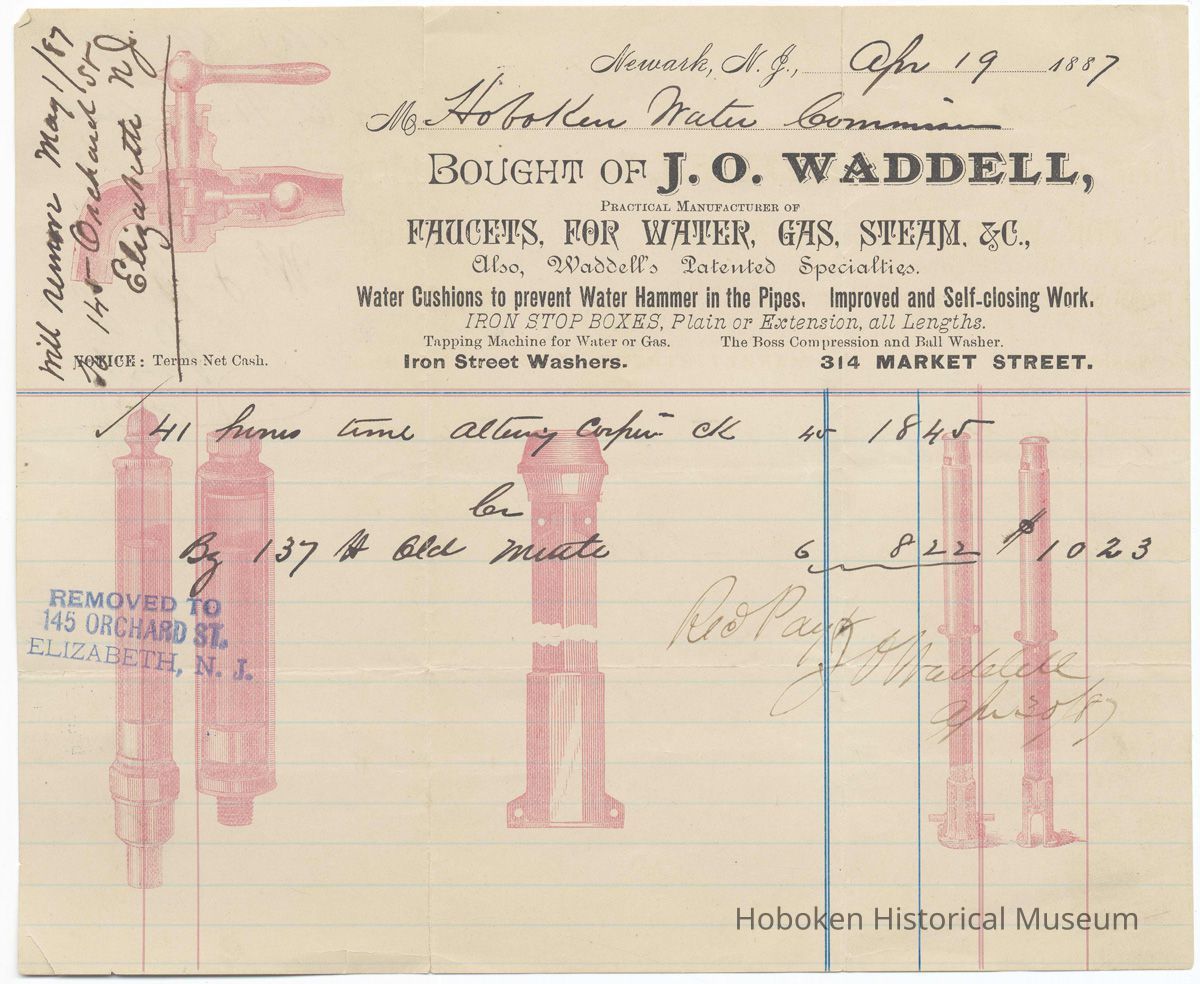 Will remove May 1/87
to 145 Orchard St
Elizabeth N J.
Newark, N. J., Apr 19 1887
M Hoboken Water Commission
BOUGHT OF J. O. WADDELL,
PRACTICAL MANUFACTURER OF
FAUCETS, FOR WATER, GAS, STEAM, &C.,
Also, Waddell's Patented Specialties.
Water Cushions to prevent Water Hammer in the Pipes. Improved and Self-closing Work.
IRON STOP BOXES, Plain or Extension, all Lengths.
Tapping Machine for Water or Gas. The Boss Compression and Ball Washer.
NOTICE: Terms Net Cash. Iron Street Washers. 314 MARKET STREET.
41 hours time altering Corpin ck 45 18 45
Cr
By 137 # Old Metle 6 8 22 $ 10 23
REMOVED TO
145 ORCHARD ST.
ELIZABETH, N. J.
Recd Payt
J O Waddell
Apr 30/87
Hoboken Historical Museum